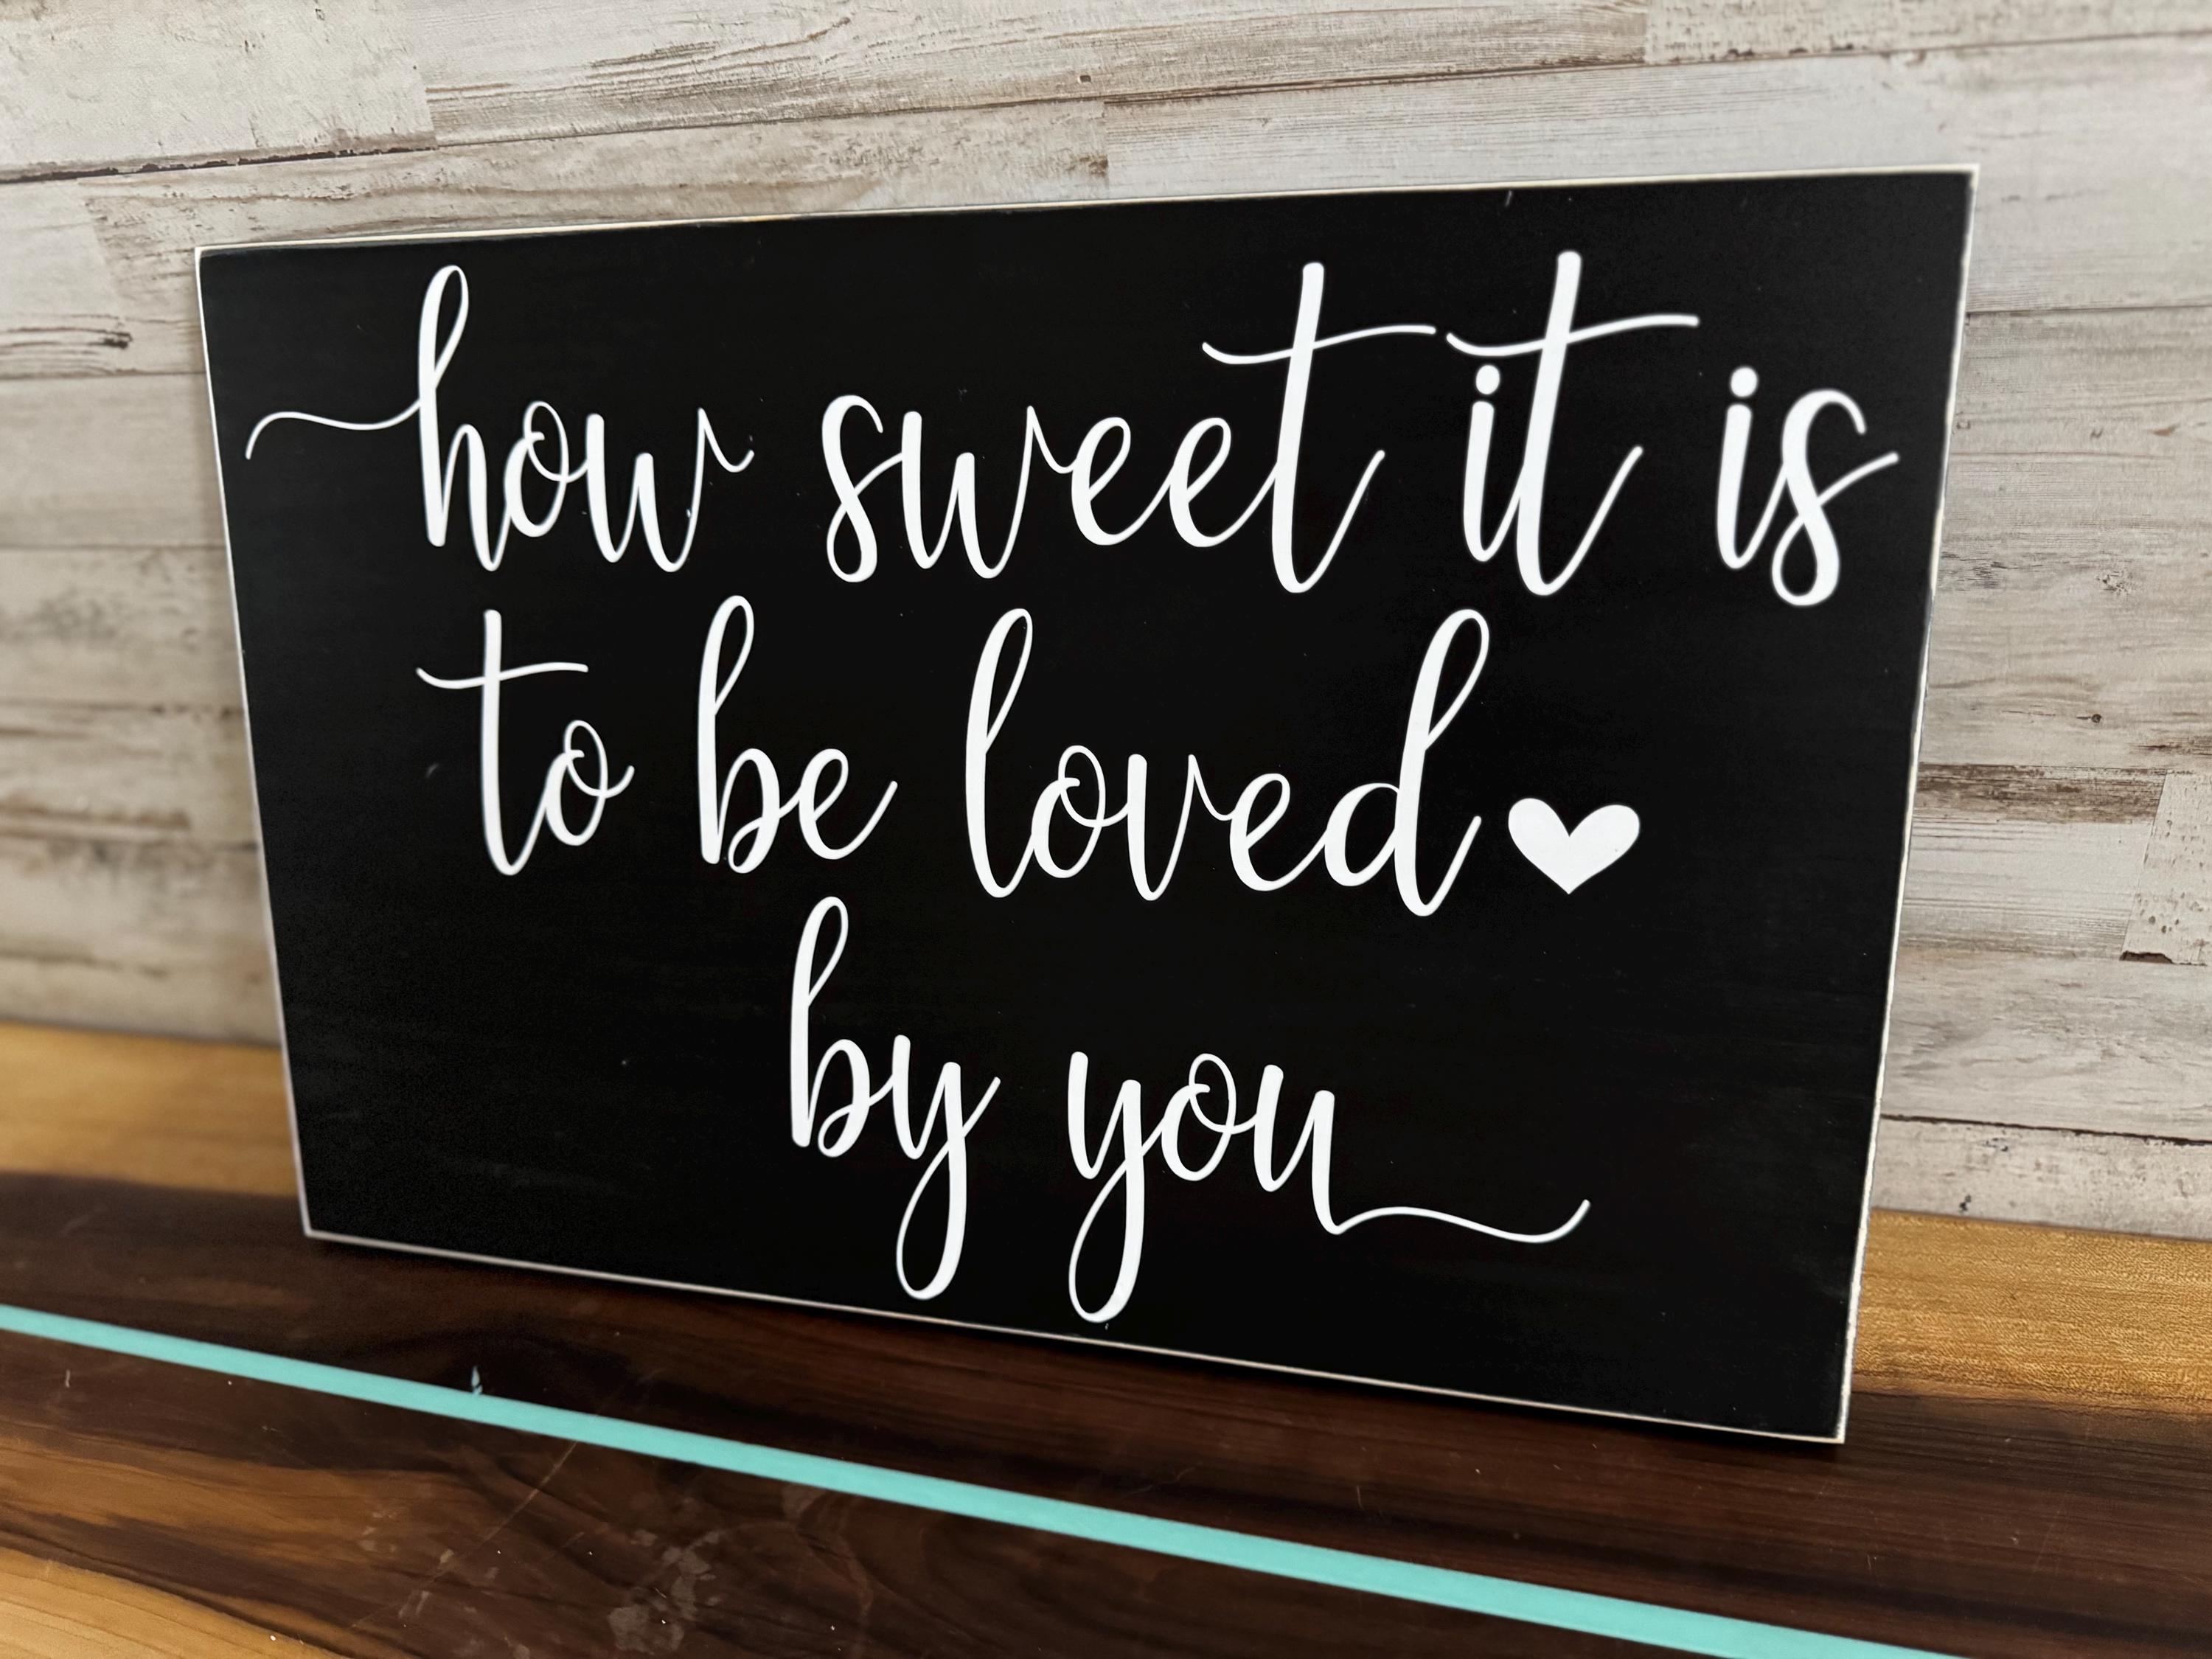 how sweet it is
to be loved ♥
by you